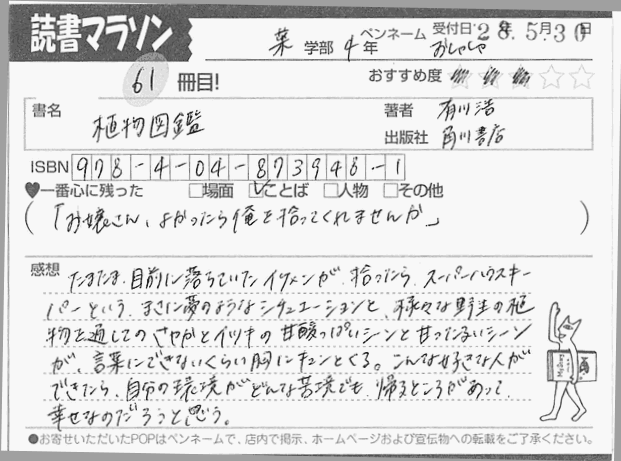 読書マラソン
薬 学部 4 年 ペンネーム おしゃしゃ 受付日: 28年 5月 30日
61 冊目!
おすすめ度 ★★★☆☆
書名 植物図鑑
著者 有川浩
出版社 角川書店
ISBN 978-4-04-873948-1
♥一番心に残った □場面 ☑ことば □人物 □その他
(「お嬢さん、よかったら俺を拾ってくれませんか」)
感想 たまたま、目前に落ちていたイケメンが、拾ったら、スーパーハウスキー
パーという、まさに夢のようなシチュエーションと、様々な野生の植
物を通してのさやかとイツキの甘酸っぱいシーンと甘ったるいシーン
が、言葉にできないくらい胸にキュンとくる。こんな好きな人が
できたら、自分の環境がどんな苦境でも、帰るところがあって、
幸せなのだろうと思う。
●お寄せいただいたPOPはペンネームで、店内で掲示、ホームページおよび宣伝物への転載をご了承ください。